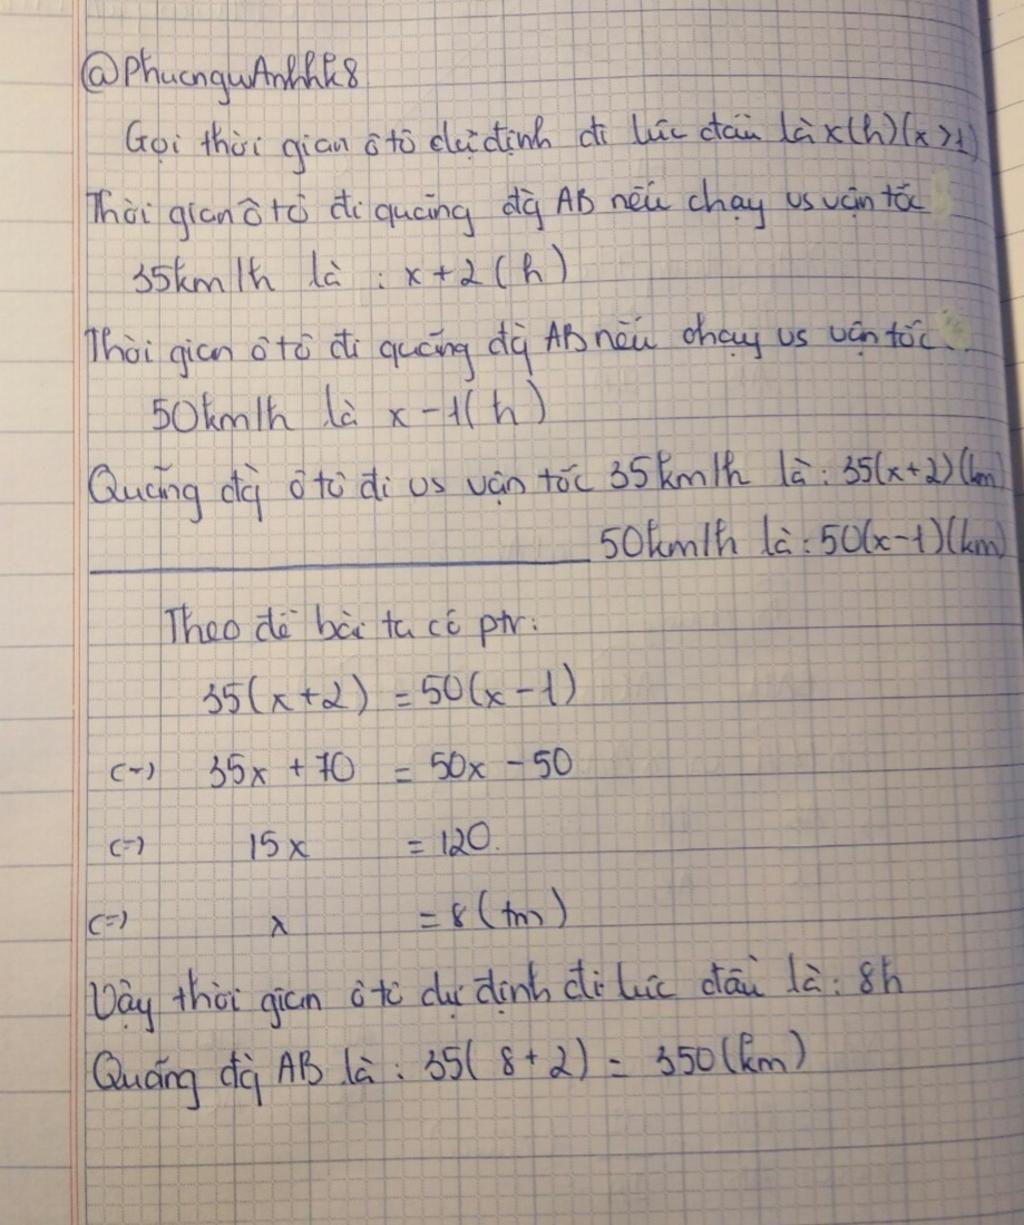 @PhucnguAnhhk8
Gọi thời gian ô tô dự định đi lúc đầu là x(h)(x>1)
Thời gian ô tô đi quãng đg AB nếu chạy vs vận tốc
35km/h là : x+2 (h)
Thời gian ô tô đi quãng đg AB nếu chạy vs vận tốc
50km/h là x-1(h)
Quãng đg ô tô đi vs vận tốc 35km/h là : 35(x+2)(km)
50km/h là : 50(x-1)(km)
Theo đề bài ta có ptr:
35(x+2) = 50(x-1)
(=) 35x + 70 = 50x - 50
(=) 15x = 120.
(=) x = 8 (tm)
Vậy thời gian ô tô dự định đi lúc đầu là : 8h
Quãng đg AB là : 35( 8+2) = 350(km)